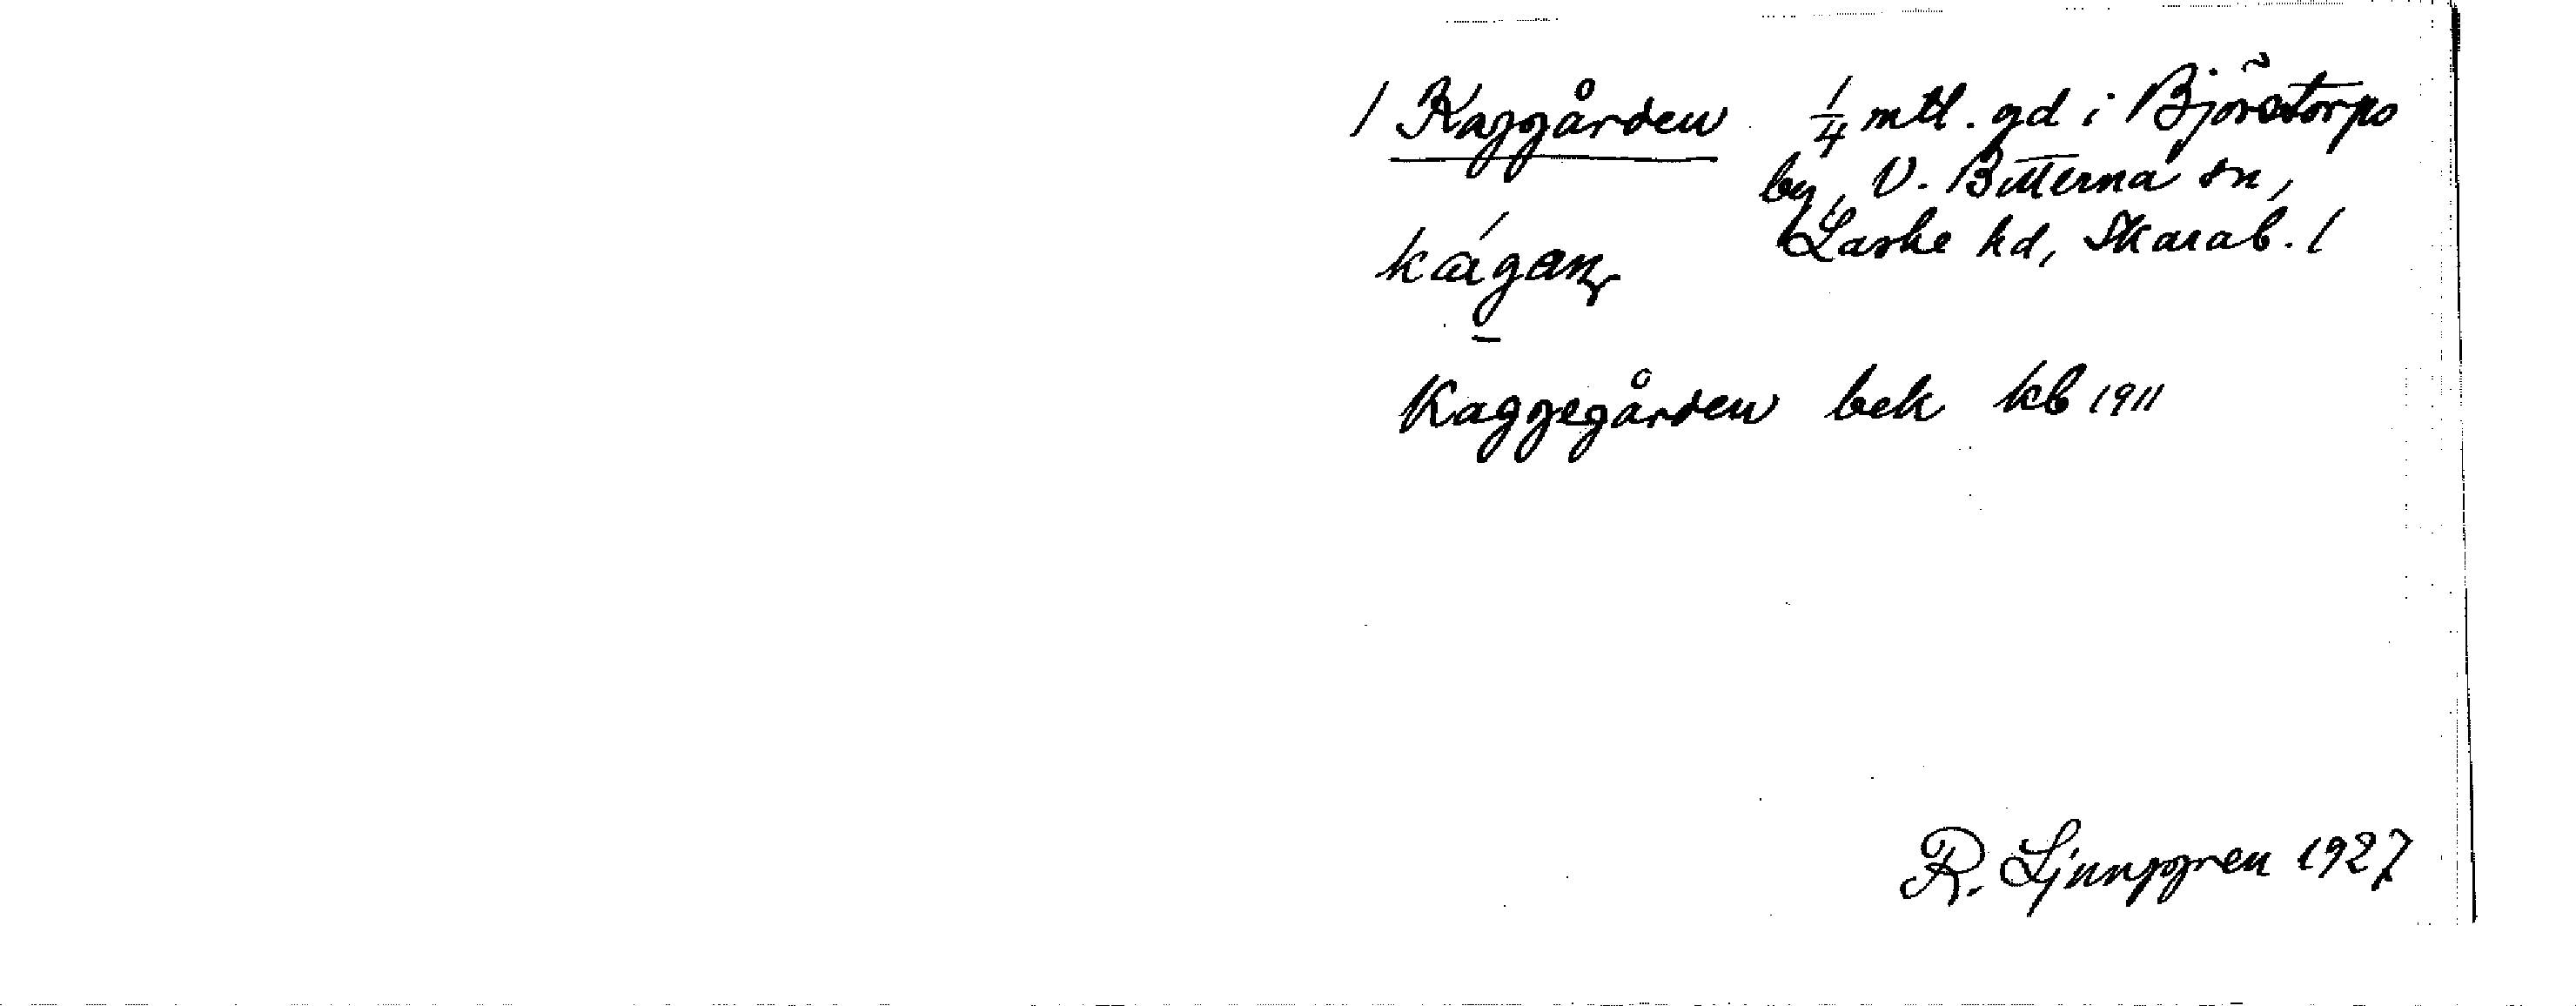 / Kaggården ¼ mtl. gd i Björstorps
by, V. Bitterna sn,
Laske hd, Skarab. l
Kaggegården bek kb 1911
R. Ljunggren 1927